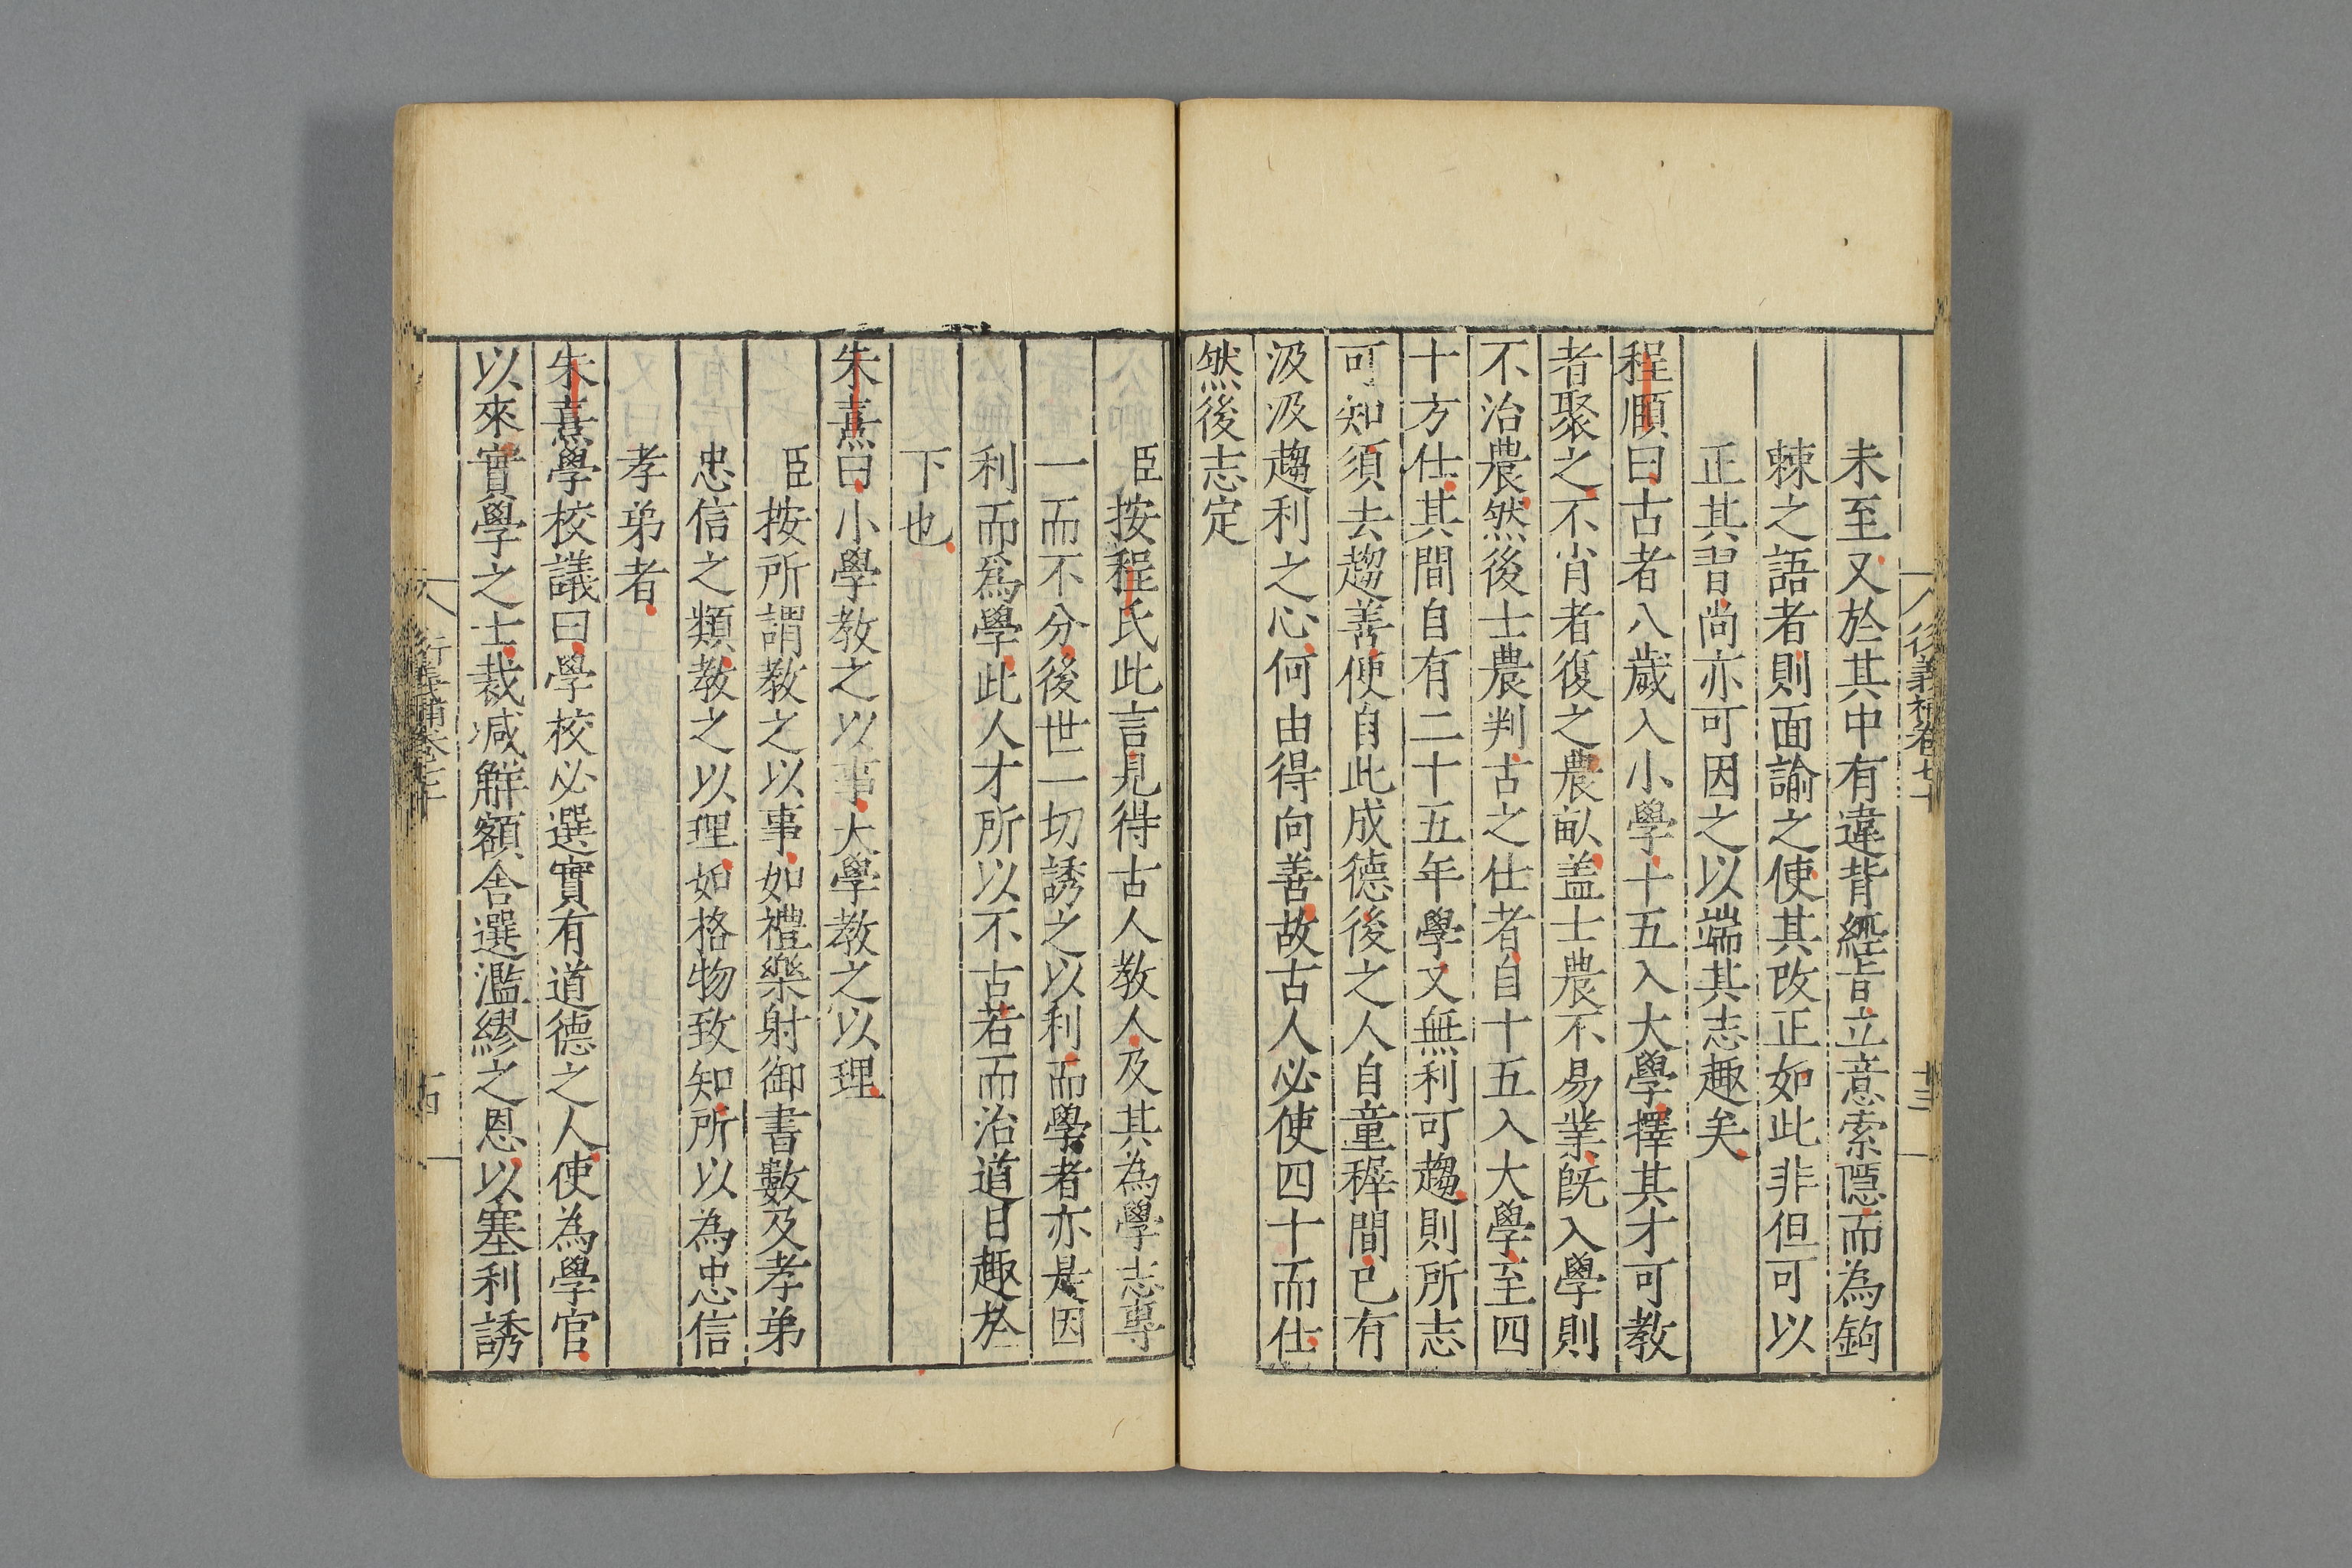 未至又於其中有違背經旨立意索隱而為鈎
棘之語者則面諭之使其改正如此非但可以
正其習尚亦可因之以端其志趣矣
程頤曰古者八歲入小學十五入大學擇其才可教
者聚之不肖者復之農畝盖士農不易業既入學則
不治農然後士農判古之仕者自十五入大學至四
十方仕其間自有二十五年學又無利可趨則所志
可知須去趨善便自此成德後之人自童穉間已有
汲汲趨利之心何由得向善故古人必使四十而仕
然後志定
臣按程氏此言見得古人教人及其為學志專
一而不分後世一切誘之以利而學者亦是因
利而為學此人才所以不古若而治道日趣於
下也
朱熹曰小學教之以事大學教之以理
臣按所謂教之以事如禮樂射御書數及孝弟
忠信之類教之以理如格物致知所以為忠信
孝弟者
朱熹學校議曰學校必選實有道德之人使為學官
以來實學之士裁減解額舍選濫繆之恩以塞利誘